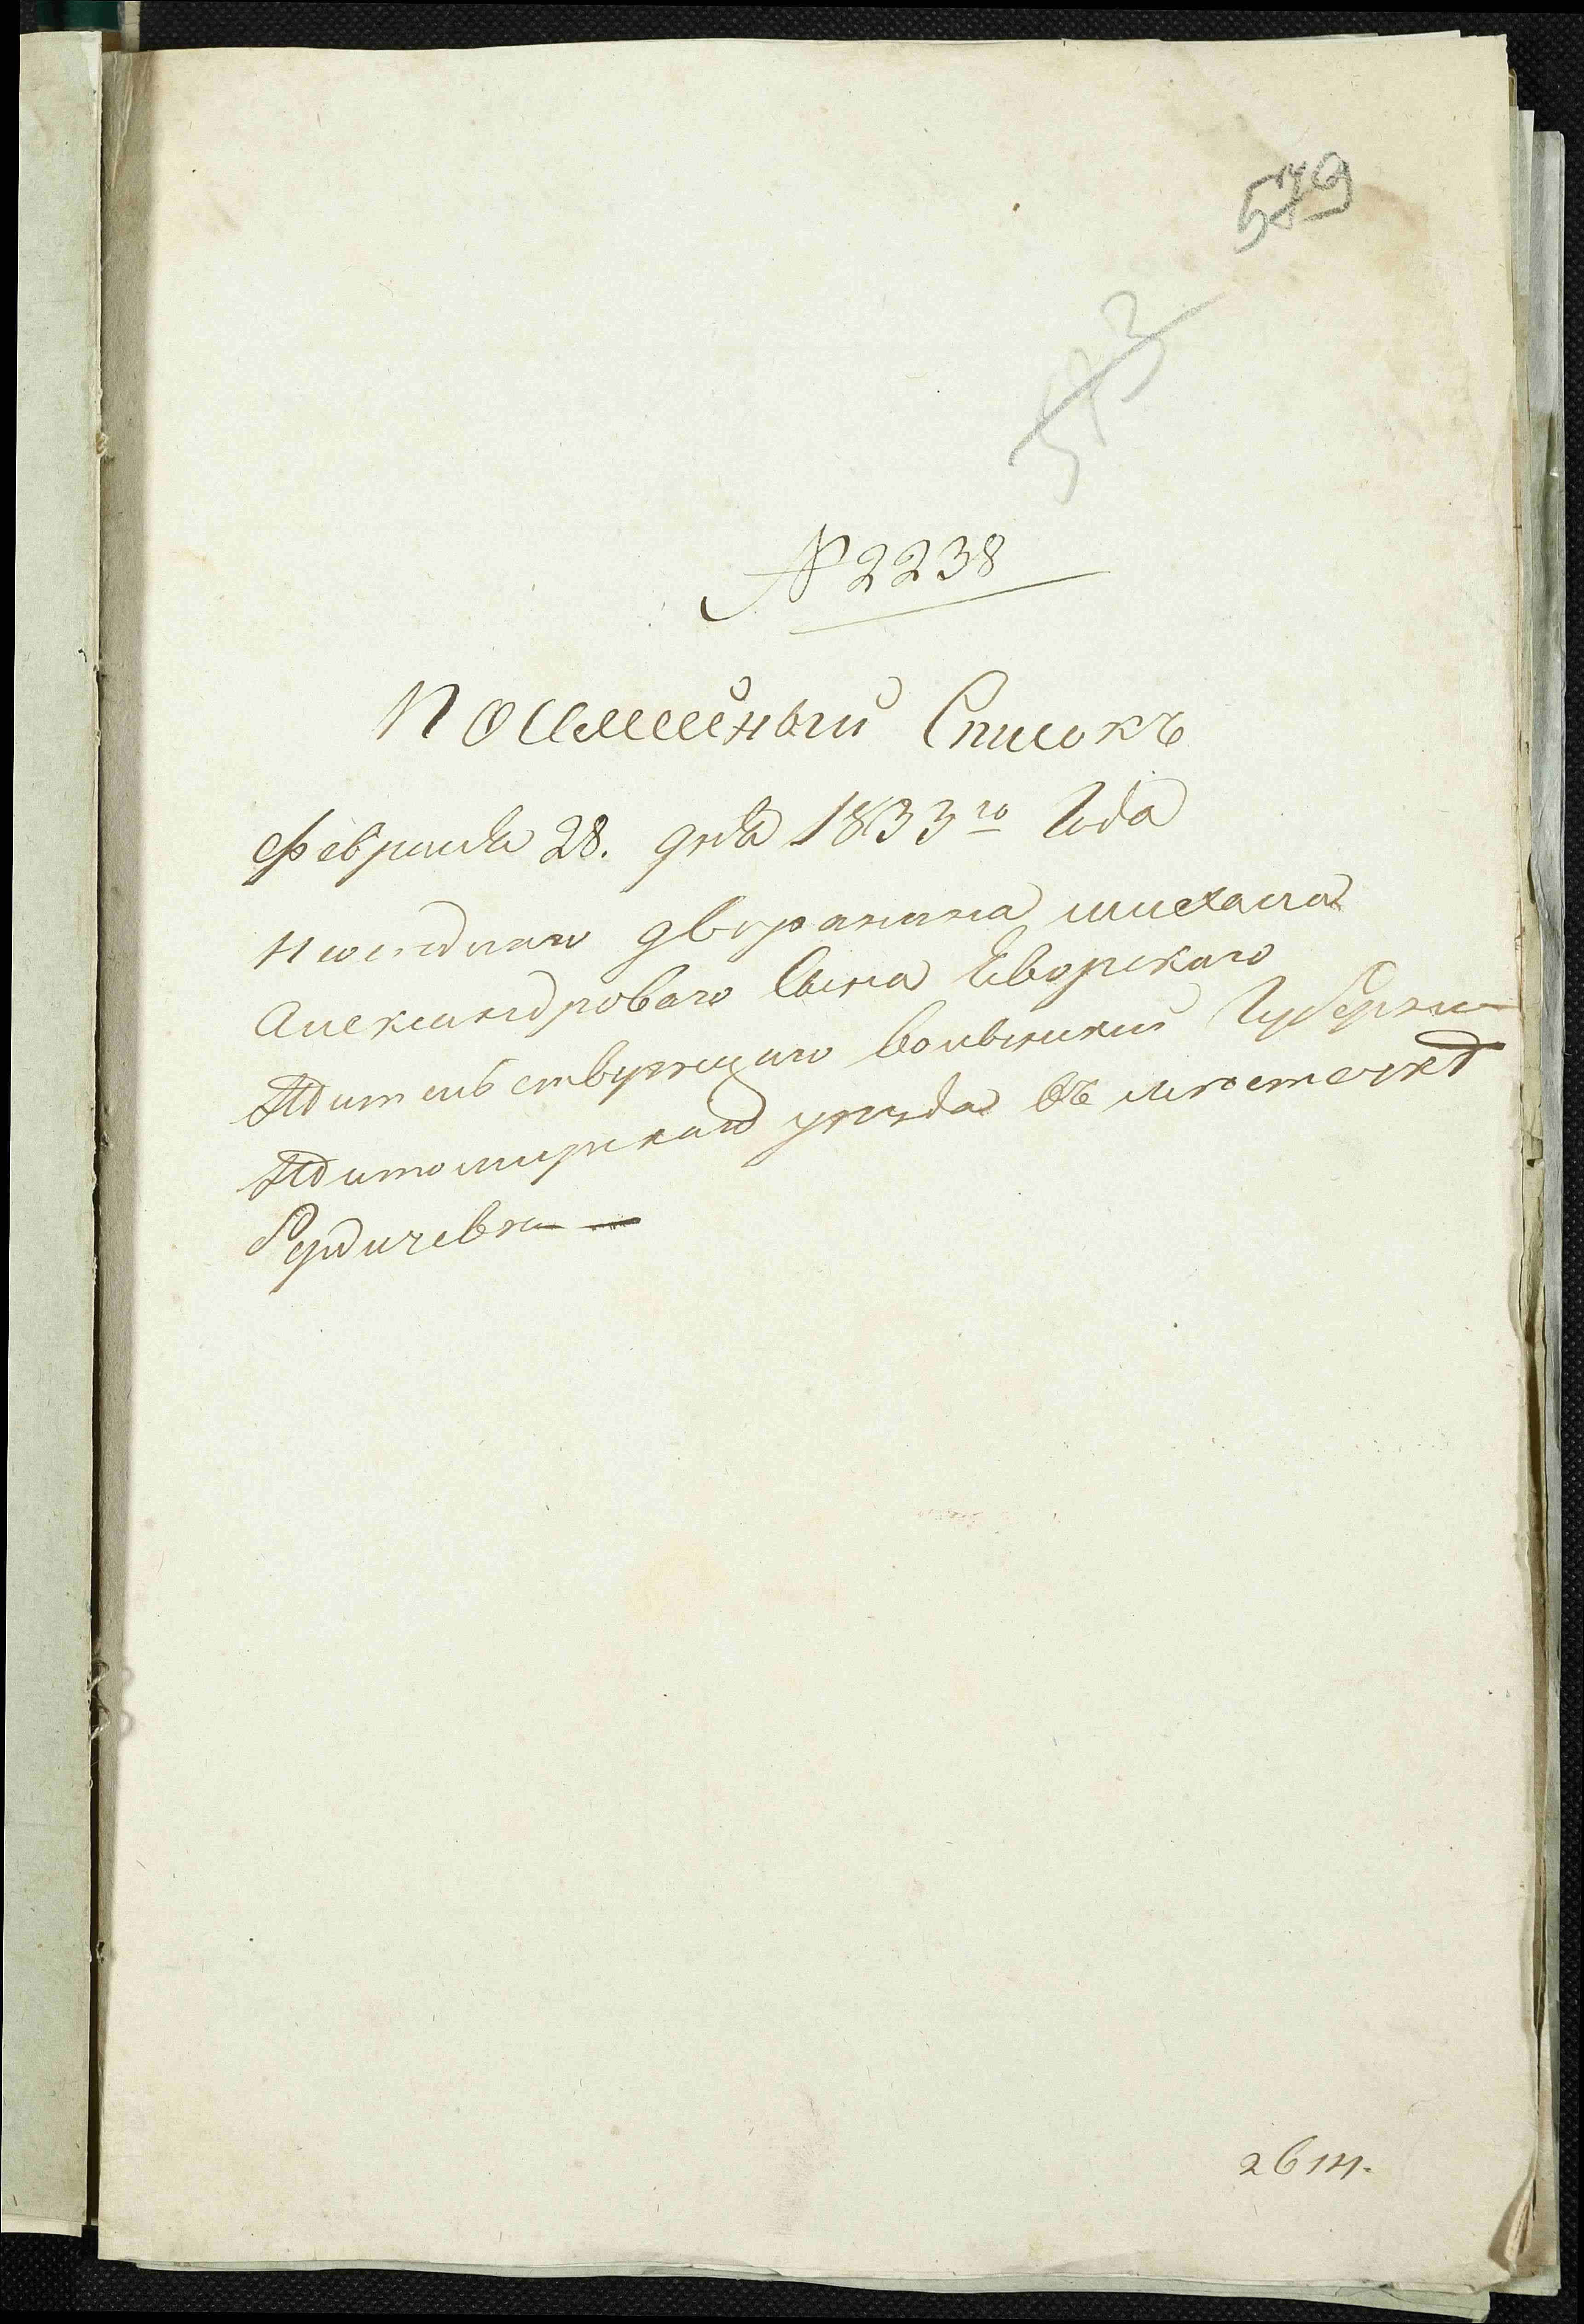 549
573
№ 2238
Посемейный Списокъ
февраля 28. дня 1833го Года
дворянина михаила
Александроваго Сына Яворскаго
Жительствующаго волынской Губернии
Житомирскаго уезда въ местечке
Бердичеве
2614.